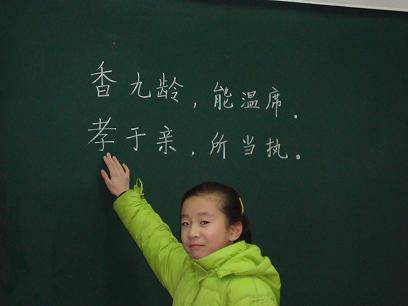 香九龄，能温席．
孝于亲，所当执。